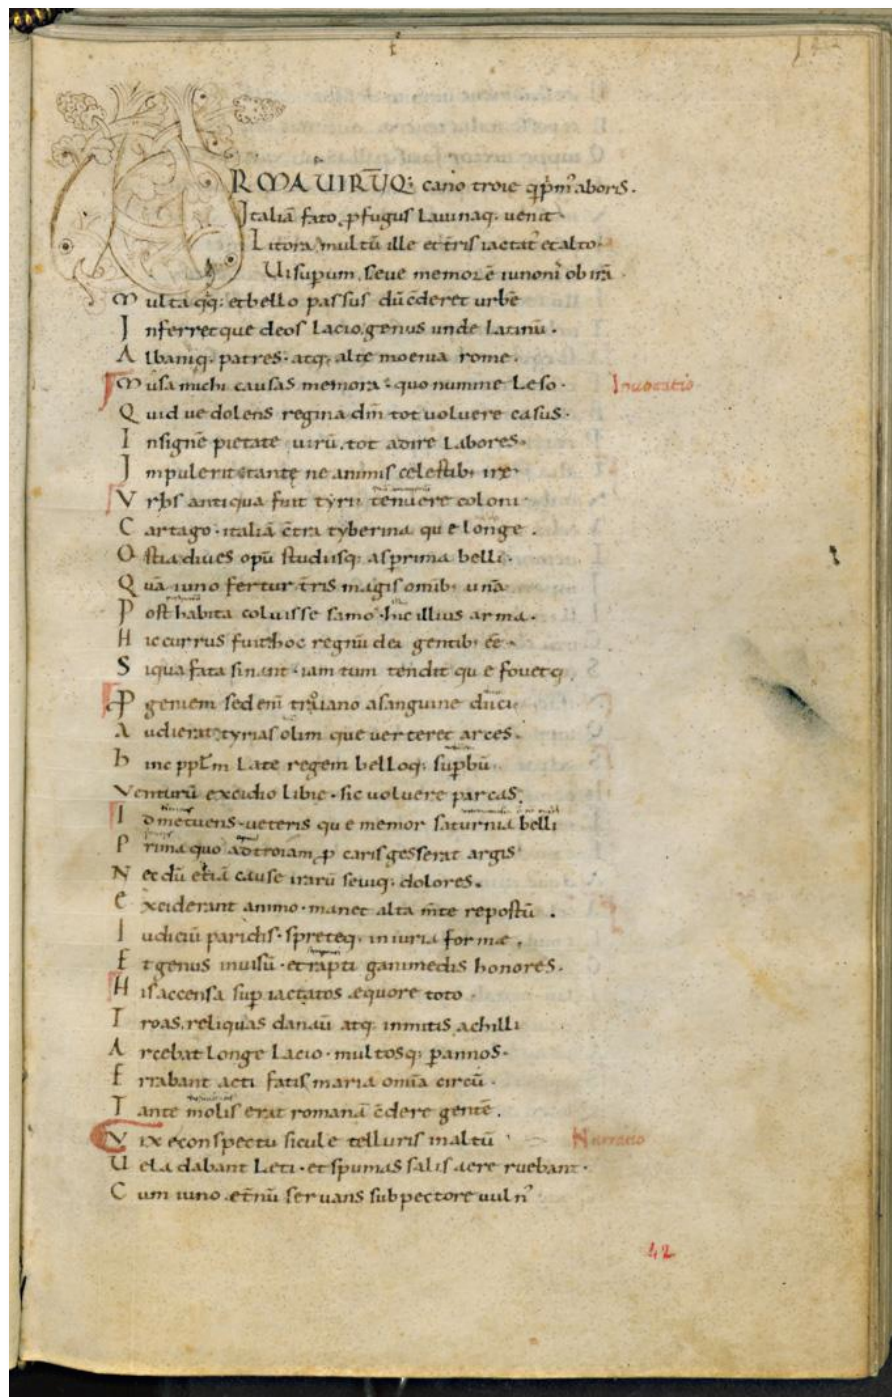 ARMA VIRŪQ: cano troie q̄ p̄m᾽ aboris.
Italiā fato ꝓfugus Lauinaq. uenit
Litora. multū ille et t̄ris iactat᾽ et alto.
Ui supum. seue memorē iunoni᾽ ob irā
Multa qq: et bello passus dū c̄deret urbē
Inferretque deos Lacio. genus unde latinū.
Albaniq. patres. atq; alte moenia rome.
Musa michi causas memora. quo numine Leso. Inuocatio
Quid ue dolens regina dm̄ tot uoluere casus.
Insignē pietate uirū. tot adire Labores.
Impulerit tante ne animis celestib; ire.
Vrbs antiqua fuit tyrii tenuere coloni
Cartago. italiā c̄tra tyberina que longe.
Ostia diues opū studiisq; asprima belli.
Quā iuno fertur t̄ris magis omib; unā
Posthabita coluisse samo. hic illius arma.
Hic currus fuit. hoc regnū dea gentib; ēē.
Siqua fata sinant. iam tum tendit que fouetq;
Pgeniem sed em̄ troiano a sanguine duci
Audierat tyrias olim que verteret arces.
hinc pplm Late regem belloq; supbū
Venturū excidio libie. sic uoluere parcas.
Id metuens. ueteris que memor saturnia belli
Prima quo ad troiam ꝓ caris gesserat argis
Nec dū etiā cause irarū seuiq. dolores.
Exciderant animo. manet alta m̄te repostū.
Iudiciū paridis. spreteq. iniuria formæ.
Et genus inuisū. et rapti ganimedis honores.
His accensa sup iactatos æquore toto.
Troas. reliquas danaū atq. inmitis achilli
Arcebat Longe Lacio. multosq; p annos.
Errabant acti fatis maria omīa circū.
Tante molis erat romanā c̄dere gentē.
Vix e conspectu sicule telluris inaltū Narratio
Uela dabant Leti. et spumas salis aere ruebant.
Cum iuno et̄nū seruans sub pectore uuln᾽
42